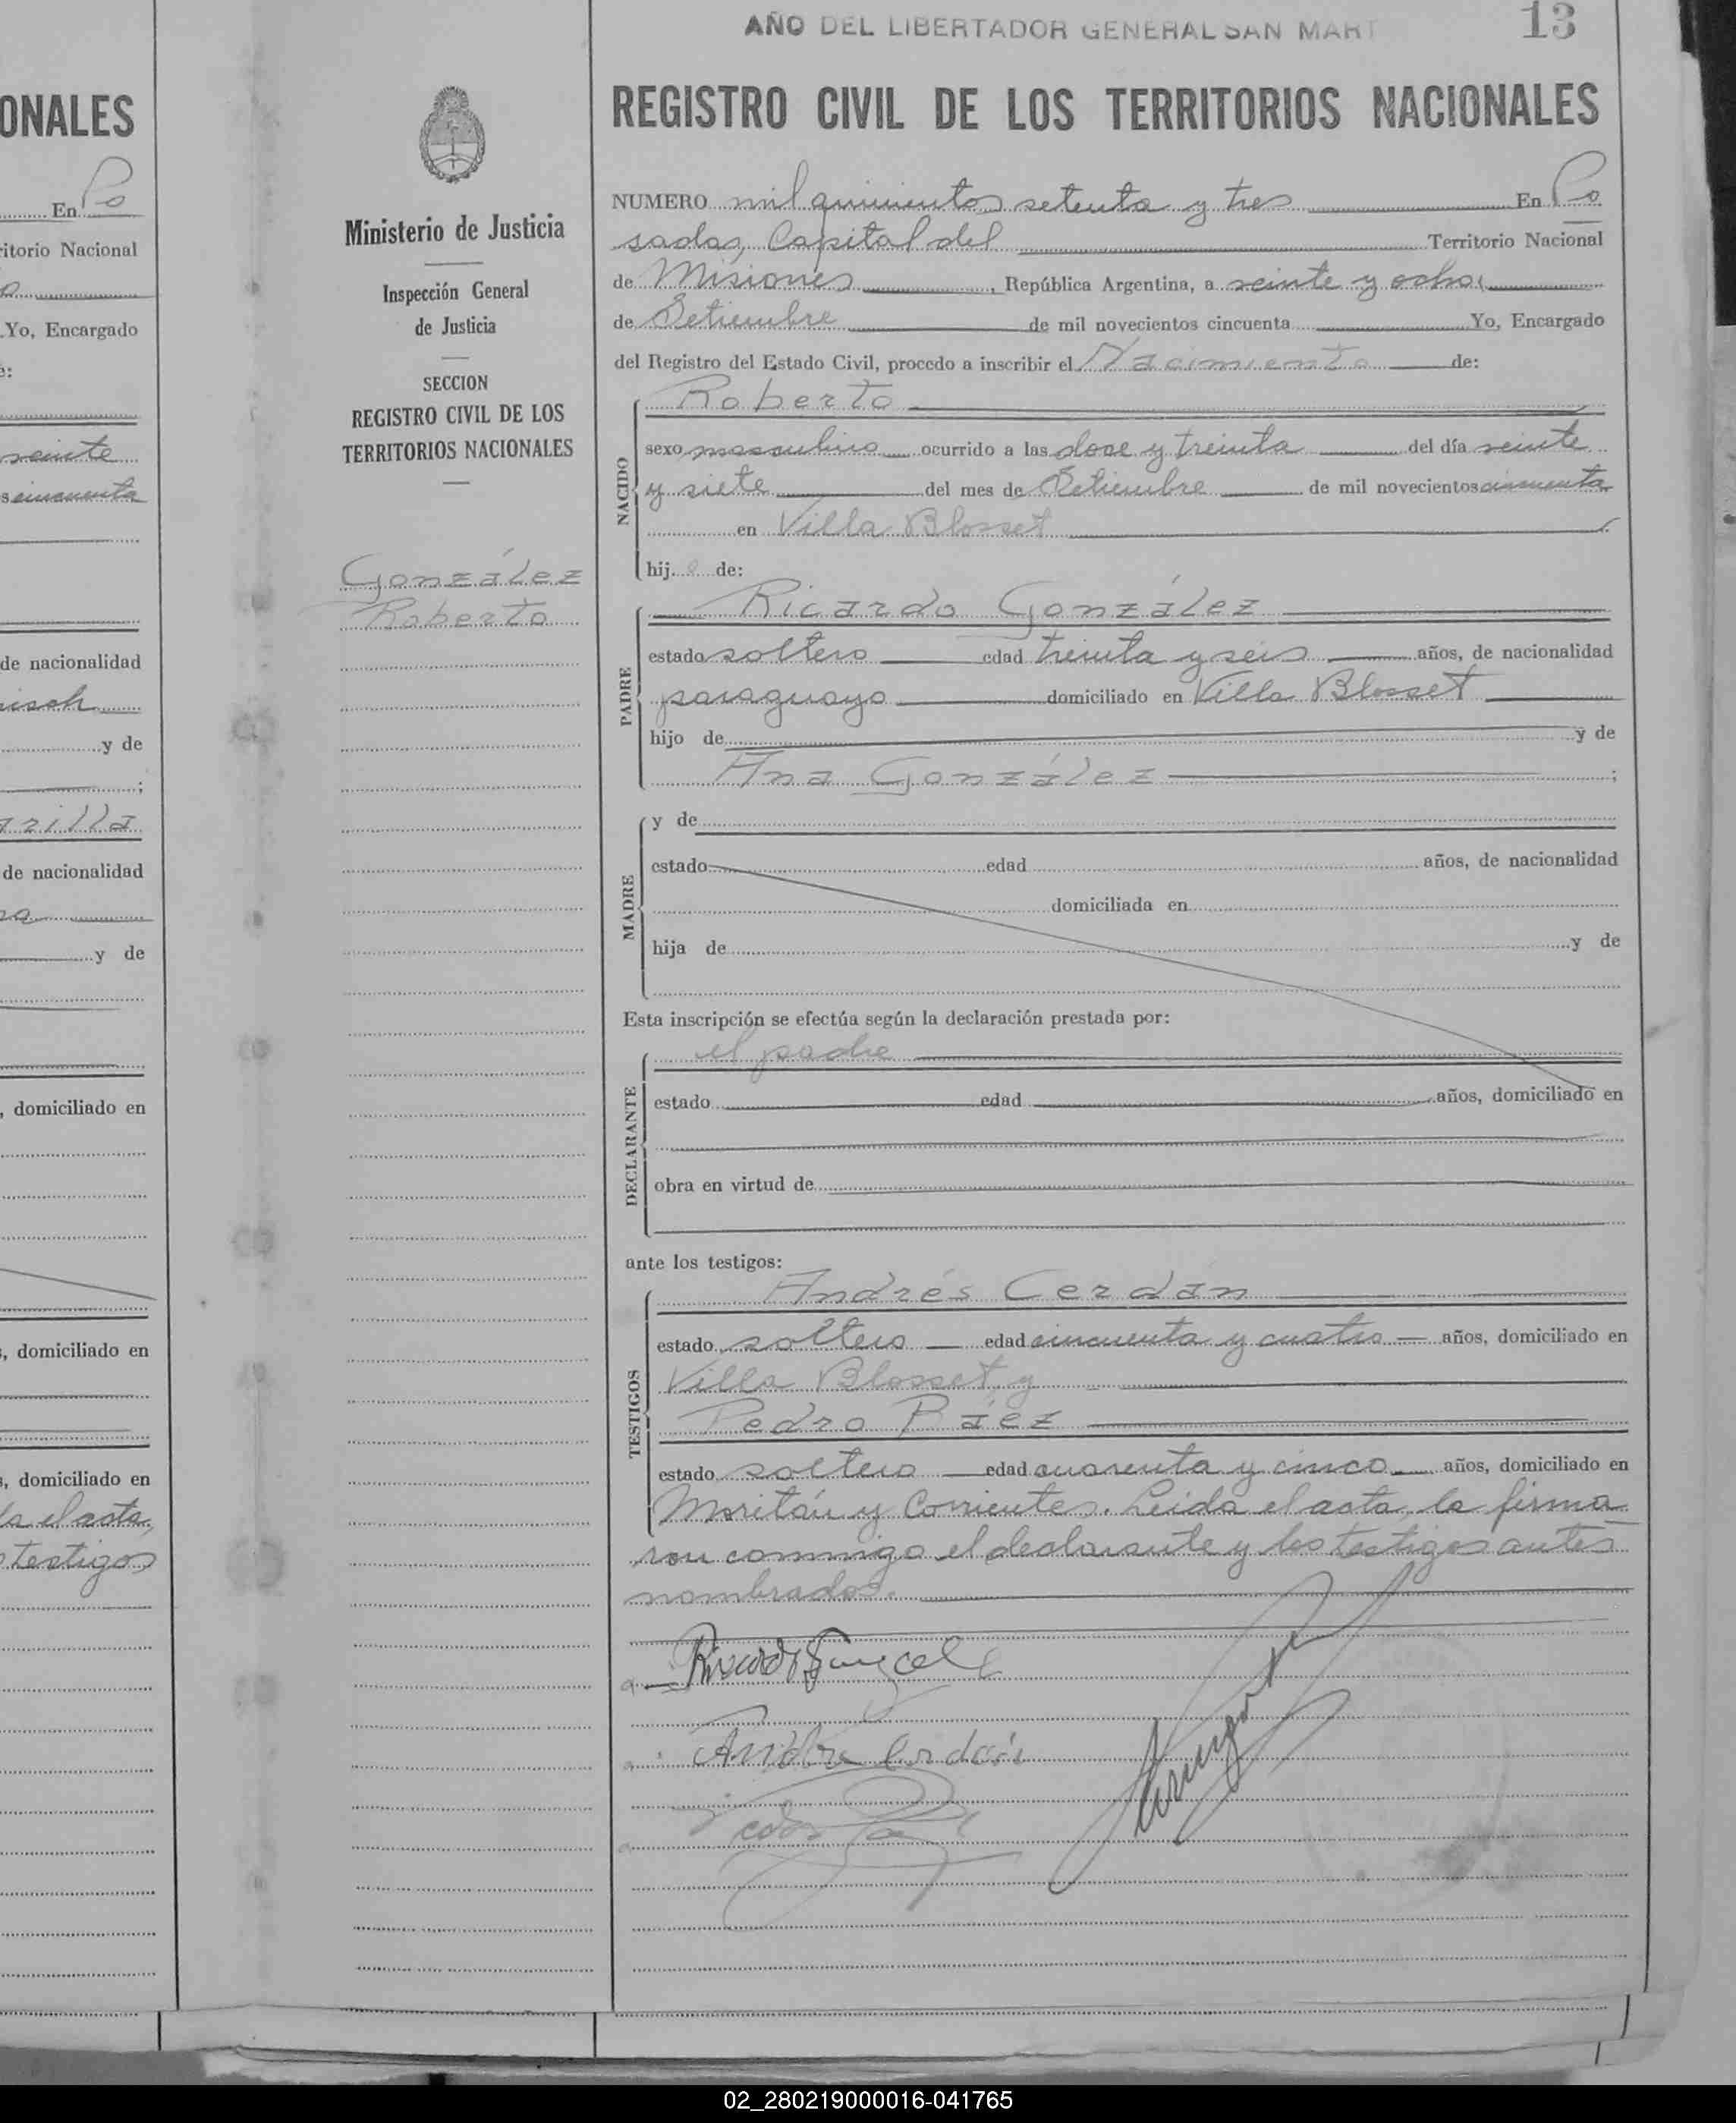 AÑO DEL LIBERTADOR GENERAL SAN MART
13
ONALES
En Po
ritorio Nacional
Yo, Encargado
e:
veinte
s cincuenta
de nacionalidad
y de
;
de nacionalidad
y de
, domiciliado en
, domiciliado en
, domiciliado en
la el acta,
testigos
Ministerio de Justicia
Inspección General
de Justicia
SECCION
REGISTRO CIVIL DE LOS
TERRITORIOS NACIONALES
González
Roberto
REGISTRO CIVIL DE LOS TERRITORIOS NACIONALES
NUMERO mil quinientos setenta y tres En Po
sadas, Capital del Territorio Nacional
de Misiones, República Argentina, a veinte y ocho
de Setiembre de mil novecientos cincuenta Yo, Encargado
del Registro del Estado Civil, procedo a inscribir el Nacimiento de:
Roberto
NACIDO
sexo masculino ocurrido a las doce y treinta del día veinte
y siete del mes de Setiembre de mil novecientos cincuenta
en Villa Blosset
hijo de:
Ricardo González
PADRE
estado soltero edad treinta y seis años, de nacionalidad
paraguayo domiciliado en Villa Blosset
hijo de y de
Ana González ;
MADRE
y de
estado edad años, de nacionalidad
domiciliada en
hija de y de
Esta inscripción se efectúa según la declaración prestada por:
el padre
DECLARANTE
estado edad años, domiciliado en
obra en virtud de
ante los testigos:
Andrés Cerdán
TESTIGOS
estado soltero edad cincuenta y cuatro años, domiciliado en
Villa Blosset y
Pedro Báez
estado soltero edad cuarenta y cinco años, domiciliado en
Moritán y Corrientes. Leída el acta, la firma
ron conmigo el declarante y los testigos antes
nombrados.
Ricardo Gonzalez
Andrés Cerdán
02_280219000016-041765